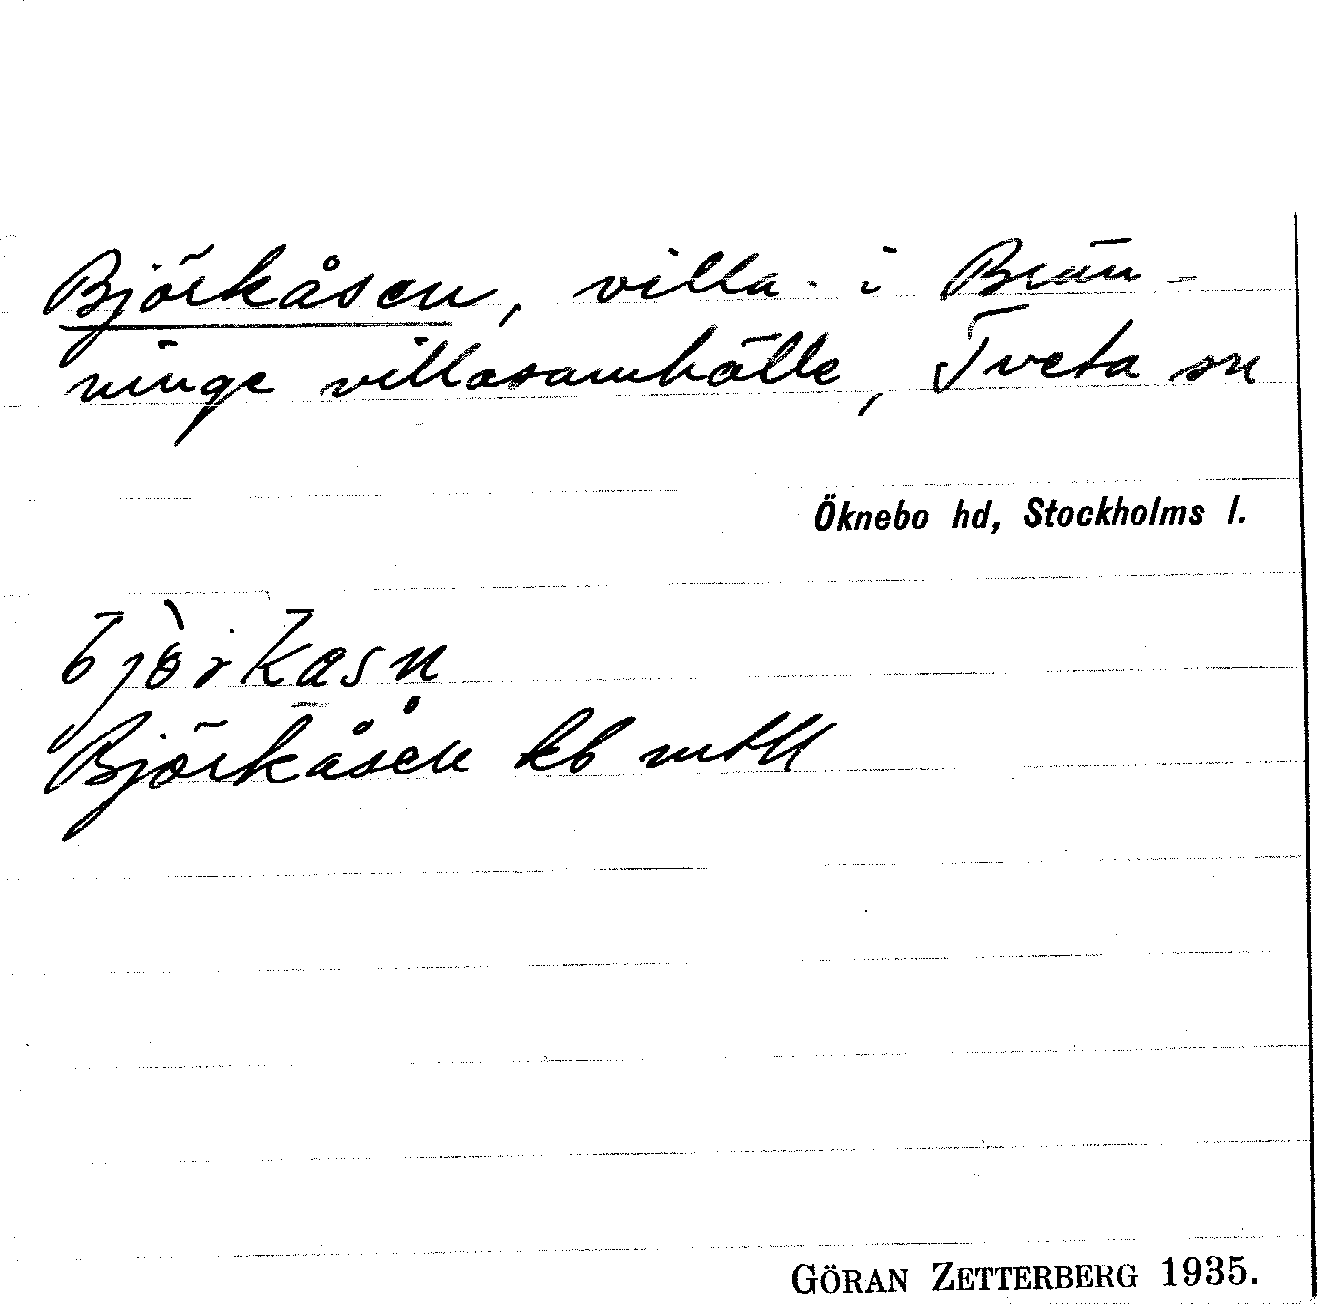 Björkåsen, villa i Brän-
ninge villasamhälle, Tveta sn
Öknebo hd, Stockholms l.
Björkåsen kb
GÖRAN ZETTERBERG 1935.